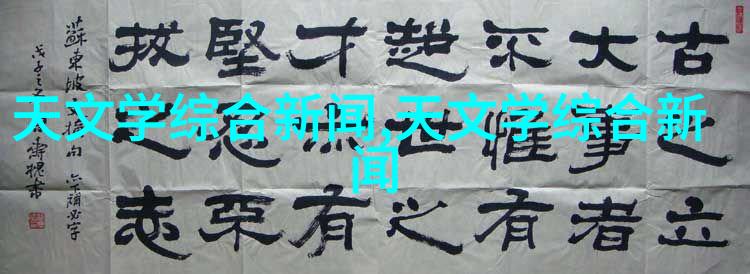 天文学综合新闻,天文学综合新
闻
古之立
大事者
不惟有
超世之
才亦有
堅忍不
拔之志
蘇東坡
戊子